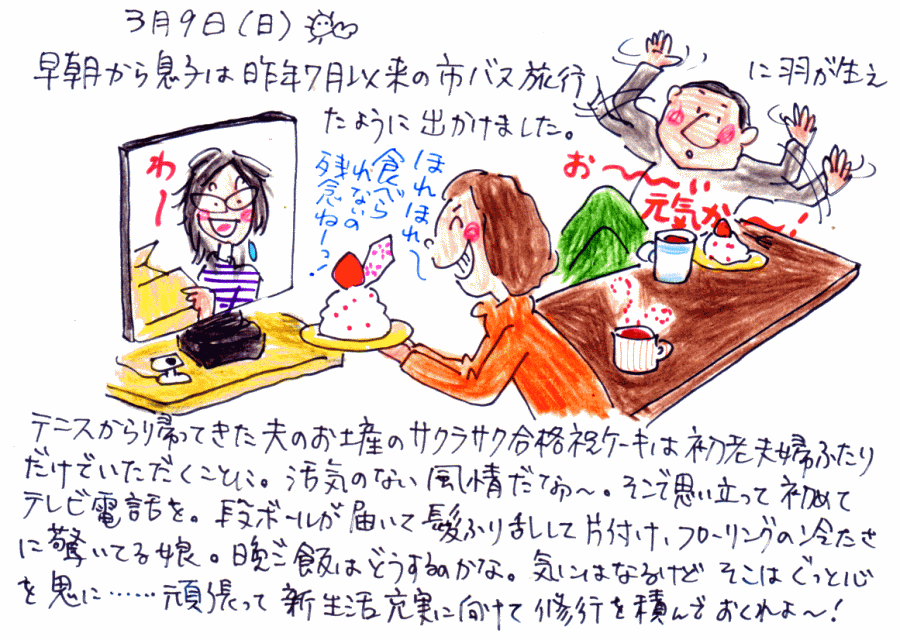 3月9日（日）
早朝から息子は昨年7月以来の市バス旅行に羽が生え
たように出かけました。
わー
ほれほれ〜
食べら
れないの
残念ねー！
お〜〜い
元気か〜！
テニスから帰ってきた夫のお土産のサクラサク合格祝ケーキは初老夫婦ふたり
だけでいただくことに。活気のない風情だなあ〜。そこで思い立って初めて
テレビ電話を。段ボールが届いて髪ふり乱して片付け、フローリングの冷たさ
に驚いてる娘。晩ご飯はどうするのかな。気にはなるけどそこはぐっと心
を鬼に……頑張って新生活充実に向けて修行を積んでおくれよ〜！